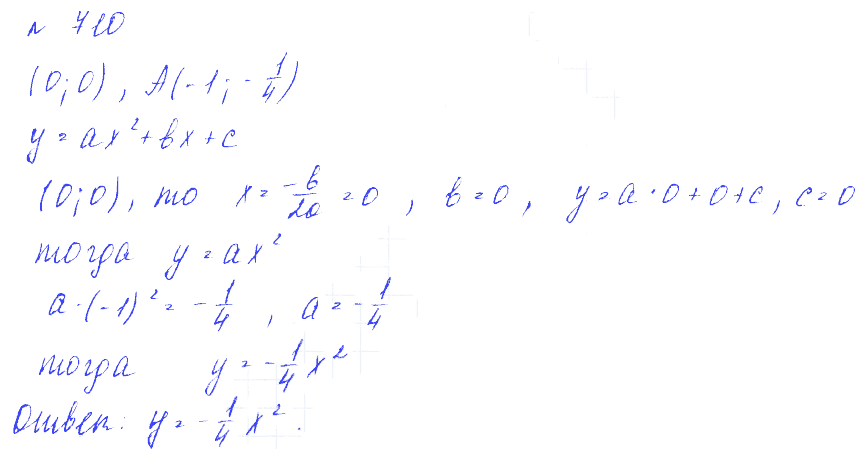 № 710
(0;0), A(-1; -1/4)
y = ax² + bx + c
(0;0), то x = -b/2a = 0, b = 0, y = a·0 + 0 + c, c = 0
тогда y = ax²
a·(-1)² = -1/4, a = -1/4
тогда y = -1/4 x²
Ответ: y = -1/4 x².